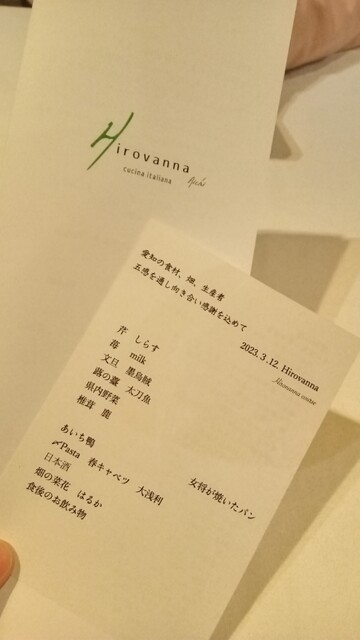 Hirovanna
cucina italiana
愛知の食材、畑、生産者
五感を通し向き合い感謝を込めて
2023.3.12. Hirovanna
芹　しらす
苺　milk
文旦　墨烏賊
蕗の薹　太刀魚
県内野菜
椎茸　鹿
あいち鴨
〆Pasta　春キャベツ　大浅利
女将が焼いたパン
日本酒
畑の菜花　はるか
食後のお飲み物